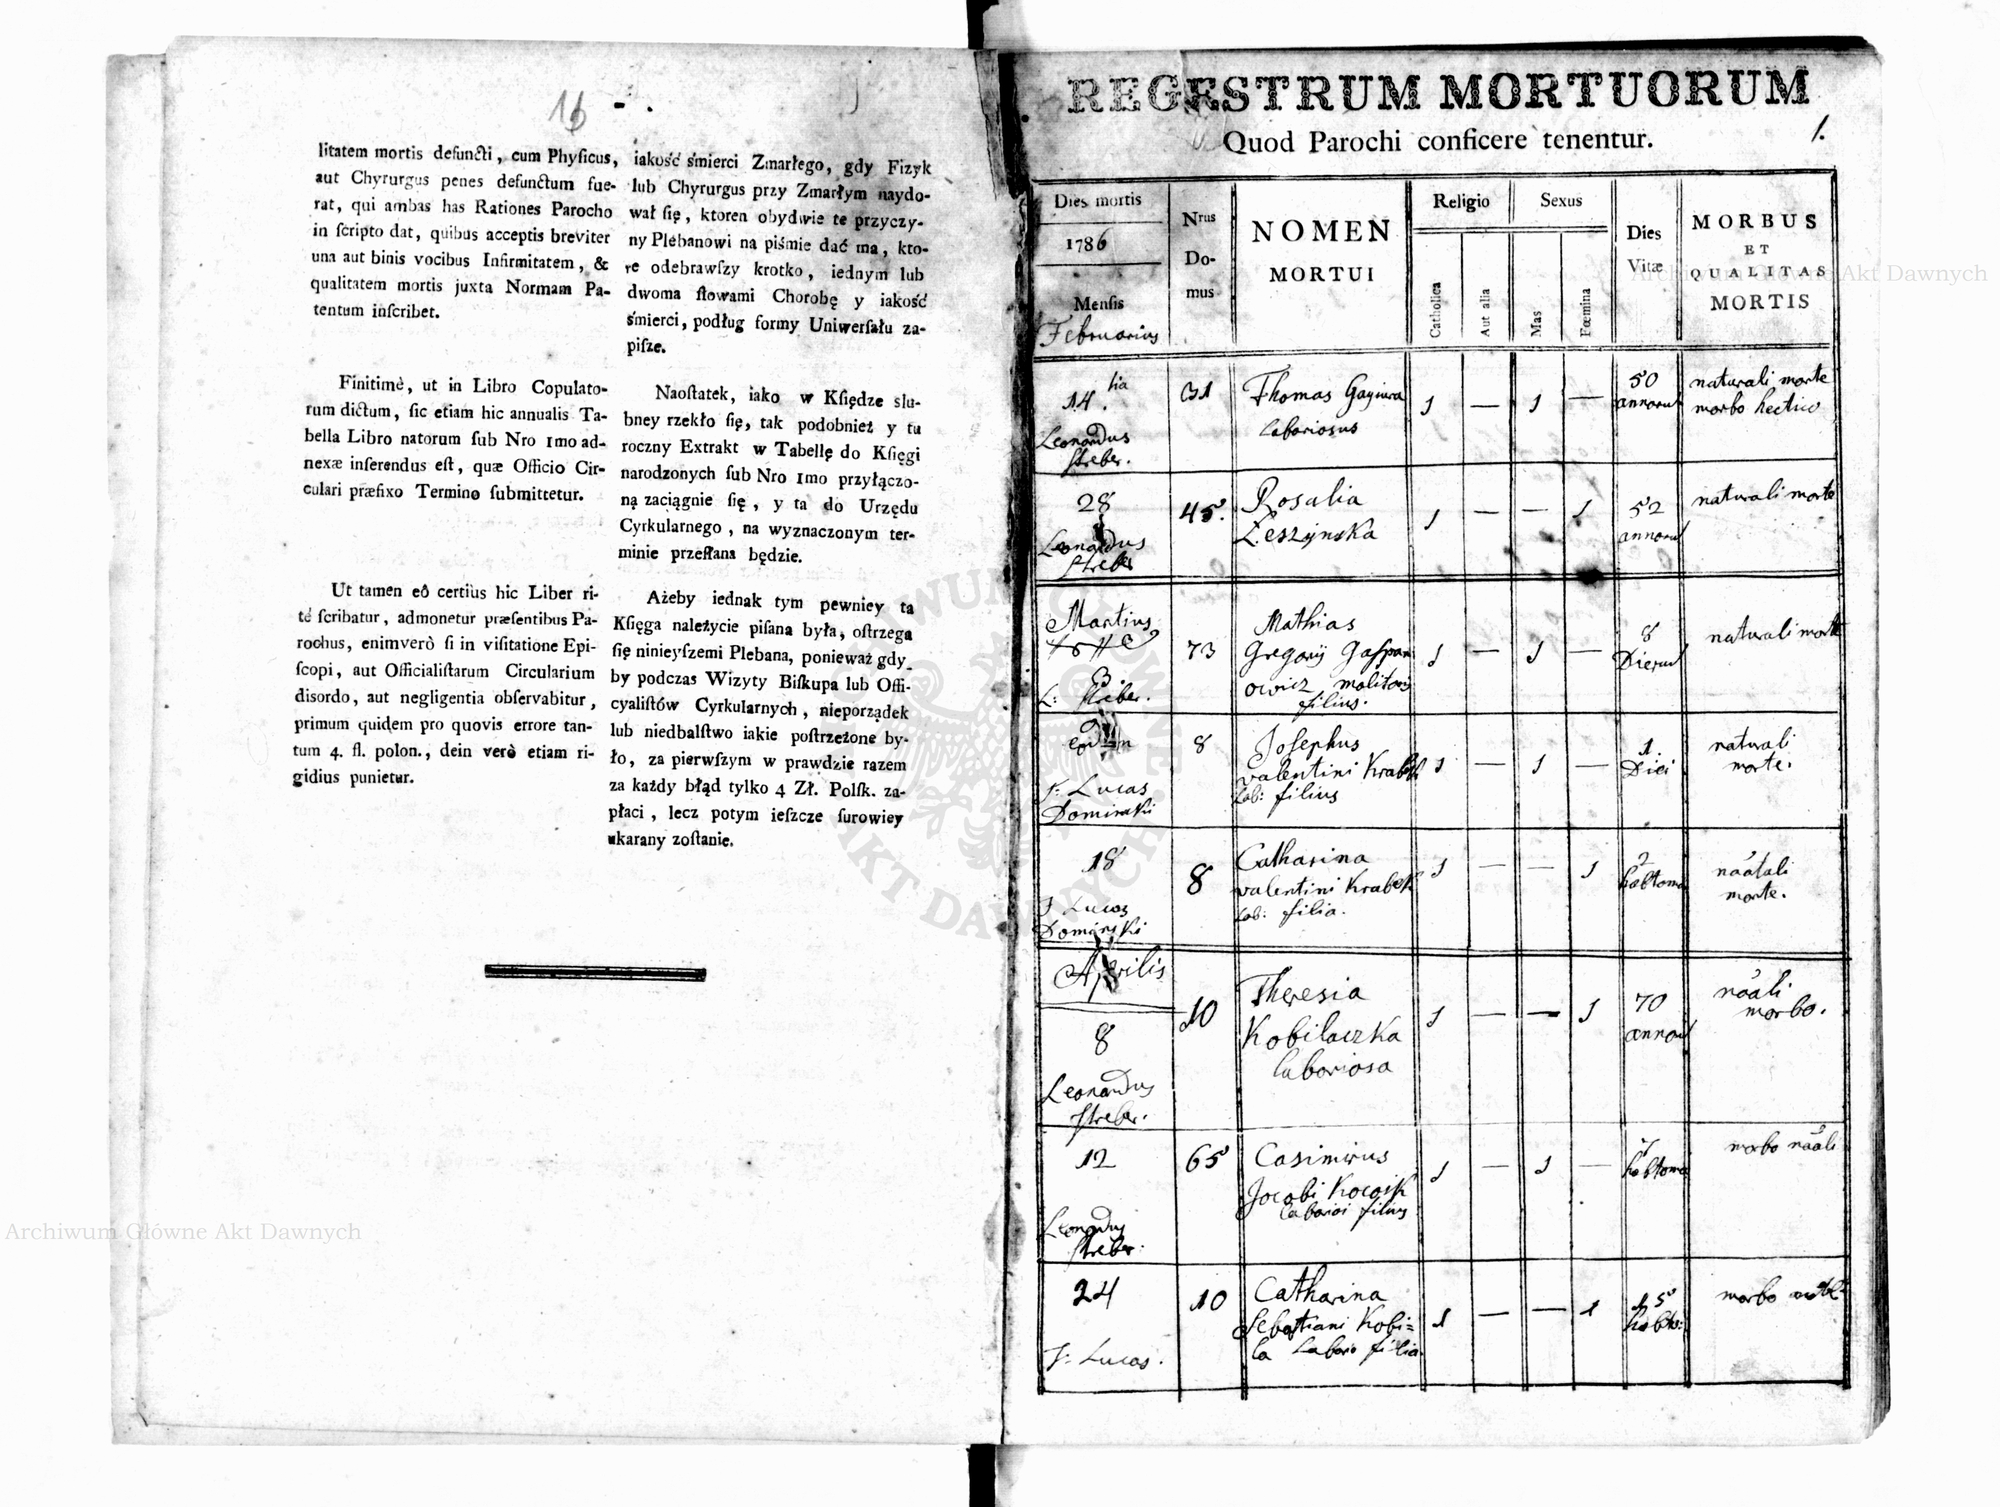 16
litatem mortis defuncti, cum Phyſicus,
aut Chyrurgus penes defunctum fue-
rat, qui ambas has Rationes Parocho
in ſcripto dat, quibus acceptis breviter
una aut binis vocibus Infirmitatem, &
qualitatem mortis juxta Normam Pa-
tentum inſcribet.
Finitimè, ut in Libro Copulato-
rum dictum, ſic etiam hic annualis Ta-
bella Libro natorum ſub Nro 1mo ad-
nexæ inſerendus eſt, quæ Officio Cir-
culari præfixo Termino ſubmittetur.
Ut tamen eò certiùs hic Liber ri-
té ſcribatur, admonetur præſentibus Pa-
rochus, enimverò ſi in viſitatione Epi-
ſcopi, aut Officialiſtarum Circularium
disordo, aut negligentia obſervabitur,
primum quidem pro quovis errore tan-
tum 4. fl. polon., dein verò etiam ri-
gidius punietur.
iakość śmierci Zmarłego, gdy Fizyk
lub Chyrurgus przy Zmarłym naydo-
wał ſię, ktoren obydwie te przyczy-
ny Plebanowi na piśmie dać ma, kto-
re odebrawſzy krotko, iednym lub
dwoma ſłowami Chorobę y iakość
śmierci, podług formy Uniwerſału za-
piſze.
Naoſtatek, iako w Kſiędze slu-
bney rzekło ſię, tak podobnież y tu
roczny Extrakt w Tabellę do Kſięgi
narodzonych ſub Nro 1mo przyłączo-
ną zaciągnie ſię, y ta do Urzędu
Cyrkularnego, na wyznaczonym ter-
minie przeſłana będzie.
Ażeby iednak tym pewniey ta
Kſięga należycie piſana była, oſtrzega
ſię ninieyſzemi Plebana, ponieważ gdy-
by podczas Wizyty Biſkupa lub Offi-
cyaliſtów Cyrkularnych, nieporządek
lub niedbalſtwo iakie poſtrzeżone by-
ło, za pierwſzym w prawdzie razem
za każdy błąd tylko 4 Zł. Polſk. za-
płaci, lecz potym ieſzcze ſurowiey
ukarany zoſtanie.
REGESTRUM MORTUORUM
Quod Parochi conficere tenentur.
1.
Dies mortis
1786
Menſis
Februarius
Nrus
Do-
mus
NOMEN
MORTUI
Religio
Catholica
Aut alia
Sexus
Mas
Fœmina
Dies
Vitæ
MORBUS
ET
QUALITAS
MORTIS
14 tia
Leonardus
Streber.
31
Thomas
laboriosus
1 — 1 —
50
naturali morte
morbo hectico
28
Leonardus
Streber
45.
Rosalia
Leszynska
1 — — 1
52
naturali morte
Martius
3.
L: Streber.
73
Mathias
Gregorij Gaſpar
owicz molitoris
filius.
1 — 1 —
8
Dierum
naturali morte
eadem
F: Lucas
Dominski
8
Josephus
valentini
Lab: filius
1 — 1 —
1.
Diei
naturali
morte.
18
F Lucas
Dominski
8
Catharina
valentini
Lab: filia.
1 — — 1
2
morte.
Aprilis
8
Leonardus
Streber.
10
Theresia
Kobilaczka
laboriosa
1 — — 1
70
morbo.
12
Leonardus
Streber.
65
Casimirus
Jacobi
filius
1 — 1 —
7
morbo
24
F: Lucas.
10
Catharina
Sebastiani Kobi=
la Labori filia.
1 — — 1
15
morbo
Archiwum Główne Akt Dawnych
Archiwum Główne Akt Dawnych
ARCHIWUM GŁÓWNE AKT DAWNYCH